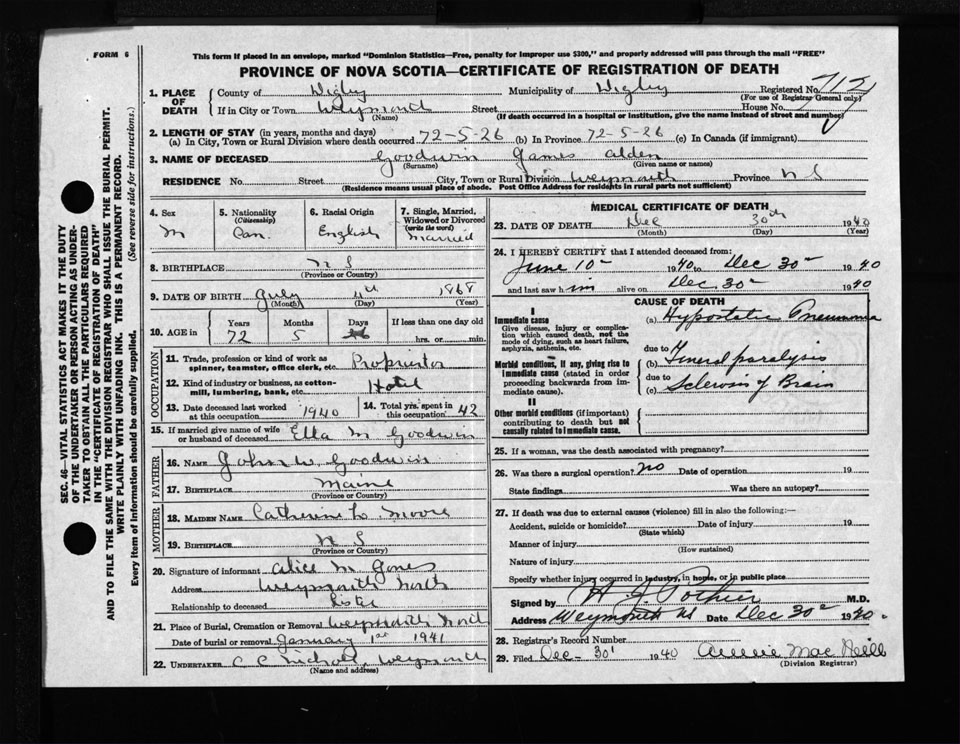 FORM 6
This form if placed in an envelope, marked "Dominion Statistics—Free, penalty for improper use $300," and properly addressed will pass through the mail "FREE"
PROVINCE OF NOVA SCOTIA—CERTIFICATE OF REGISTRATION OF DEATH
SEC. 46—VITAL STATISTICS ACT MAKES IT THE DUTY
OF THE UNDERTAKER OR PERSON ACTING AS UNDER-
TAKER TO OBTAIN ALL THE PARTICULARS REQUIRED
IN THE "CERTIFICATE OF REGISTRATION OF DEATH"
AND TO FILE THE SAME WITH THE DIVISION REGISTRAR WHO SHALL ISSUE THE BURIAL PERMIT.
WRITE PLAINLY WITH UNFADING INK. THIS IS A PERMANENT RECORD.
Every item of information should be carefully supplied. (See reverse side for instructions.)
1. PLACE OF DEATH
County of Digby Municipality of Digby Registered No.
(For use of Registrar General only)
If in City or Town Weymouth Street House No.
(Name) (If death occurred in a hospital or institution, give the name instead of street and number)
2. LENGTH OF STAY (in years, months and days)
(a) In City, Town or Rural Division where death occurred 72-5-26 (b) In Province 72-5-26 (c) In Canada (if immigrant)
3. NAME OF DECEASED Goodwin James Alden
(Surname) (Given name or names)
RESIDENCE No. Street City, Town or Rural Division Weymouth Province N S
(Residence means usual place of abode. Post Office Address for residents in rural parts not sufficient)
4. Sex
M
5. Nationality
(Citizenship)
Can.
6. Racial Origin
English
7. Single, Married,
Widowed or Divorced
(write the word)
Married
8. BIRTHPLACE N S
(Province or Country)
9. DATE OF BIRTH July 4th 1868
(Month) (Day) (Year)
10. AGE in
Years Months Days If less than one day old
72 5 26 hrs. or min.
OCCUPATION
11. Trade, profession or kind of work as
spinner, teamster, office clerk, etc. Proprietor
12. Kind of industry or business, as cotton-
mill, lumbering, bank, etc. Hotel
13. Date deceased last worked
at this occupation 1940
14. Total yrs. spent in
this occupation 42
15. If married give name of wife
or husband of deceased Ella M Goodwin
FATHER
16. NAME John W Goodwin
17. BIRTHPLACE Maine
(Province or Country)
MOTHER
18. MAIDEN NAME Catherine L. Moore
19. BIRTHPLACE N S
(Province or Country)
20. Signature of informant Alice M Jones
Address Weymouth North
Relationship to deceased Sister
21. Place of Burial, Cremation or Removal Weymouth North
Date of burial or removal January 1st 1941
22. UNDERTAKER C C Weymouth
(Name and address)
MEDICAL CERTIFICATE OF DEATH
23. DATE OF DEATH Dec 30th 1940
(Month) (Day) (Year)
24. I HEREBY CERTIFY that I attended deceased from:
June 10 1940 to Dec 30 1940
and last saw him alive on Dec. 30 1940
CAUSE OF DEATH
I
Immediate cause
Give disease, injury or complica-
tion which caused death, not the
mode of dying, such as heart failure,
asphyxia, asthenia, etc.
(a) Hypostatic Pneumonia
due to
Morbid conditions, if any, giving rise to
immediate cause (stated in order
proceeding backwards from im-
mediate cause).
(b) General paralysis
due to
(c) Sclerosis of Brain
II
Other morbid conditions (if important)
contributing to death but not
causally related to immediate cause.
25. If a woman, was the death associated with pregnancy?
26. Was there a surgical operation? no Date of operation 19
State findings Was there an autopsy?
27. If death was due to external causes (violence) fill in also the following:—
Accident, suicide or homicide? Date of injury 19
(State which)
Manner of injury
(How sustained)
Nature of injury
Specify whether injury occurred in industry, in home, or in public place
Signed by H J Pothier M.D.
Address Weymouth NS Date Dec 30 1940.
28. Registrar's Record Number
29. Filed Dec - 30 1940 Annie Mac Neill
(Division Registrar)